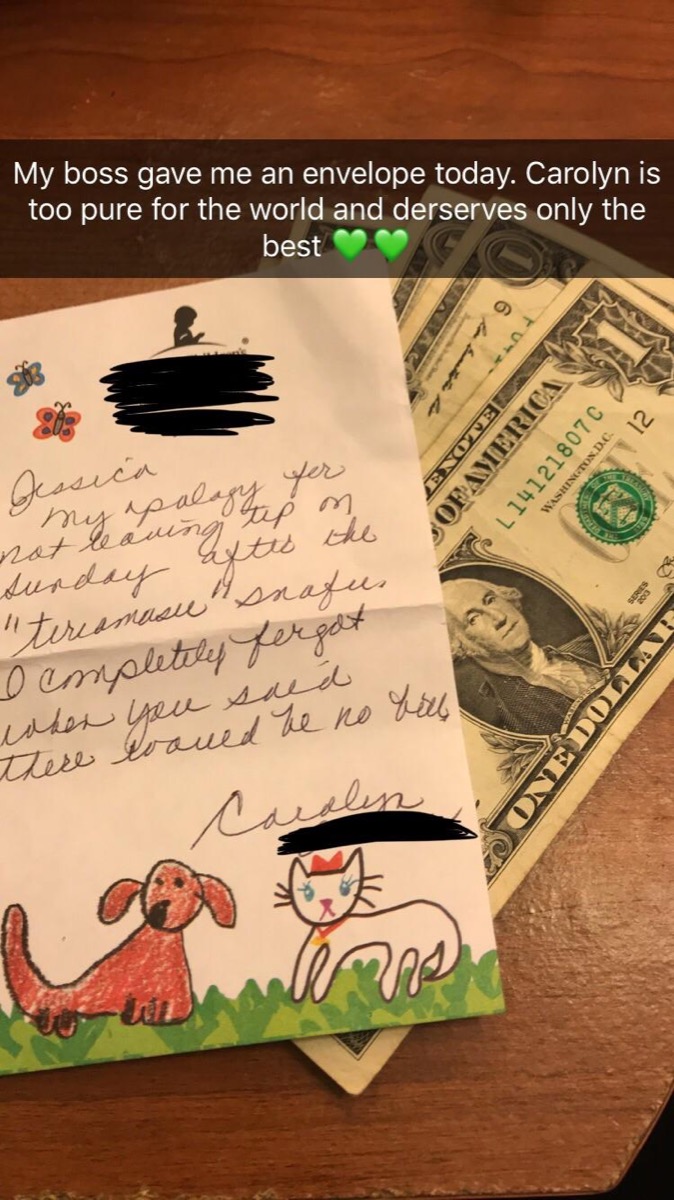 My boss gave me an envelope today. Carolyn is
too pure for the world and derserves only the
best 💚💚
Jessica
my apology for
not leaving tip on
Sunday after the
"tiriamasu" snafu.
I completely forgot
when you said
there would be no bill
Carolyn
1
OF AMERICA
L14121807C
12
WASHINGTON, D.C.
SERIES
2013
ONE DOLLAR